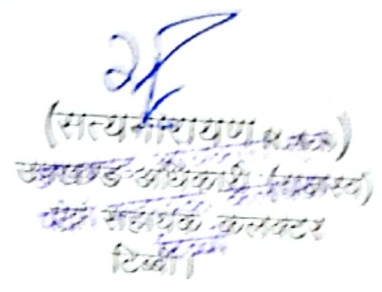 (सत्यनारायण R.A.S.)
उपखण्ड अधिकारी (राजस्व)
एवं सहायक कलक्टर
टिब्बी।